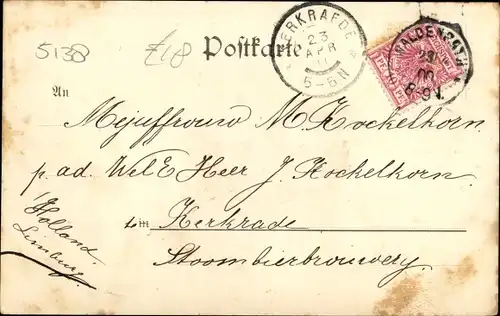 5138
£18
Postkarte
KERKRADE
23
APR
5-6N
23
00
8-9N.
An
Mejuffrouw M. Kockelkorn
p. ad. WelE Heer J. Kockelkorn.
in Kerkrade
Stoombierbrouwery.
Holland
Limburg.